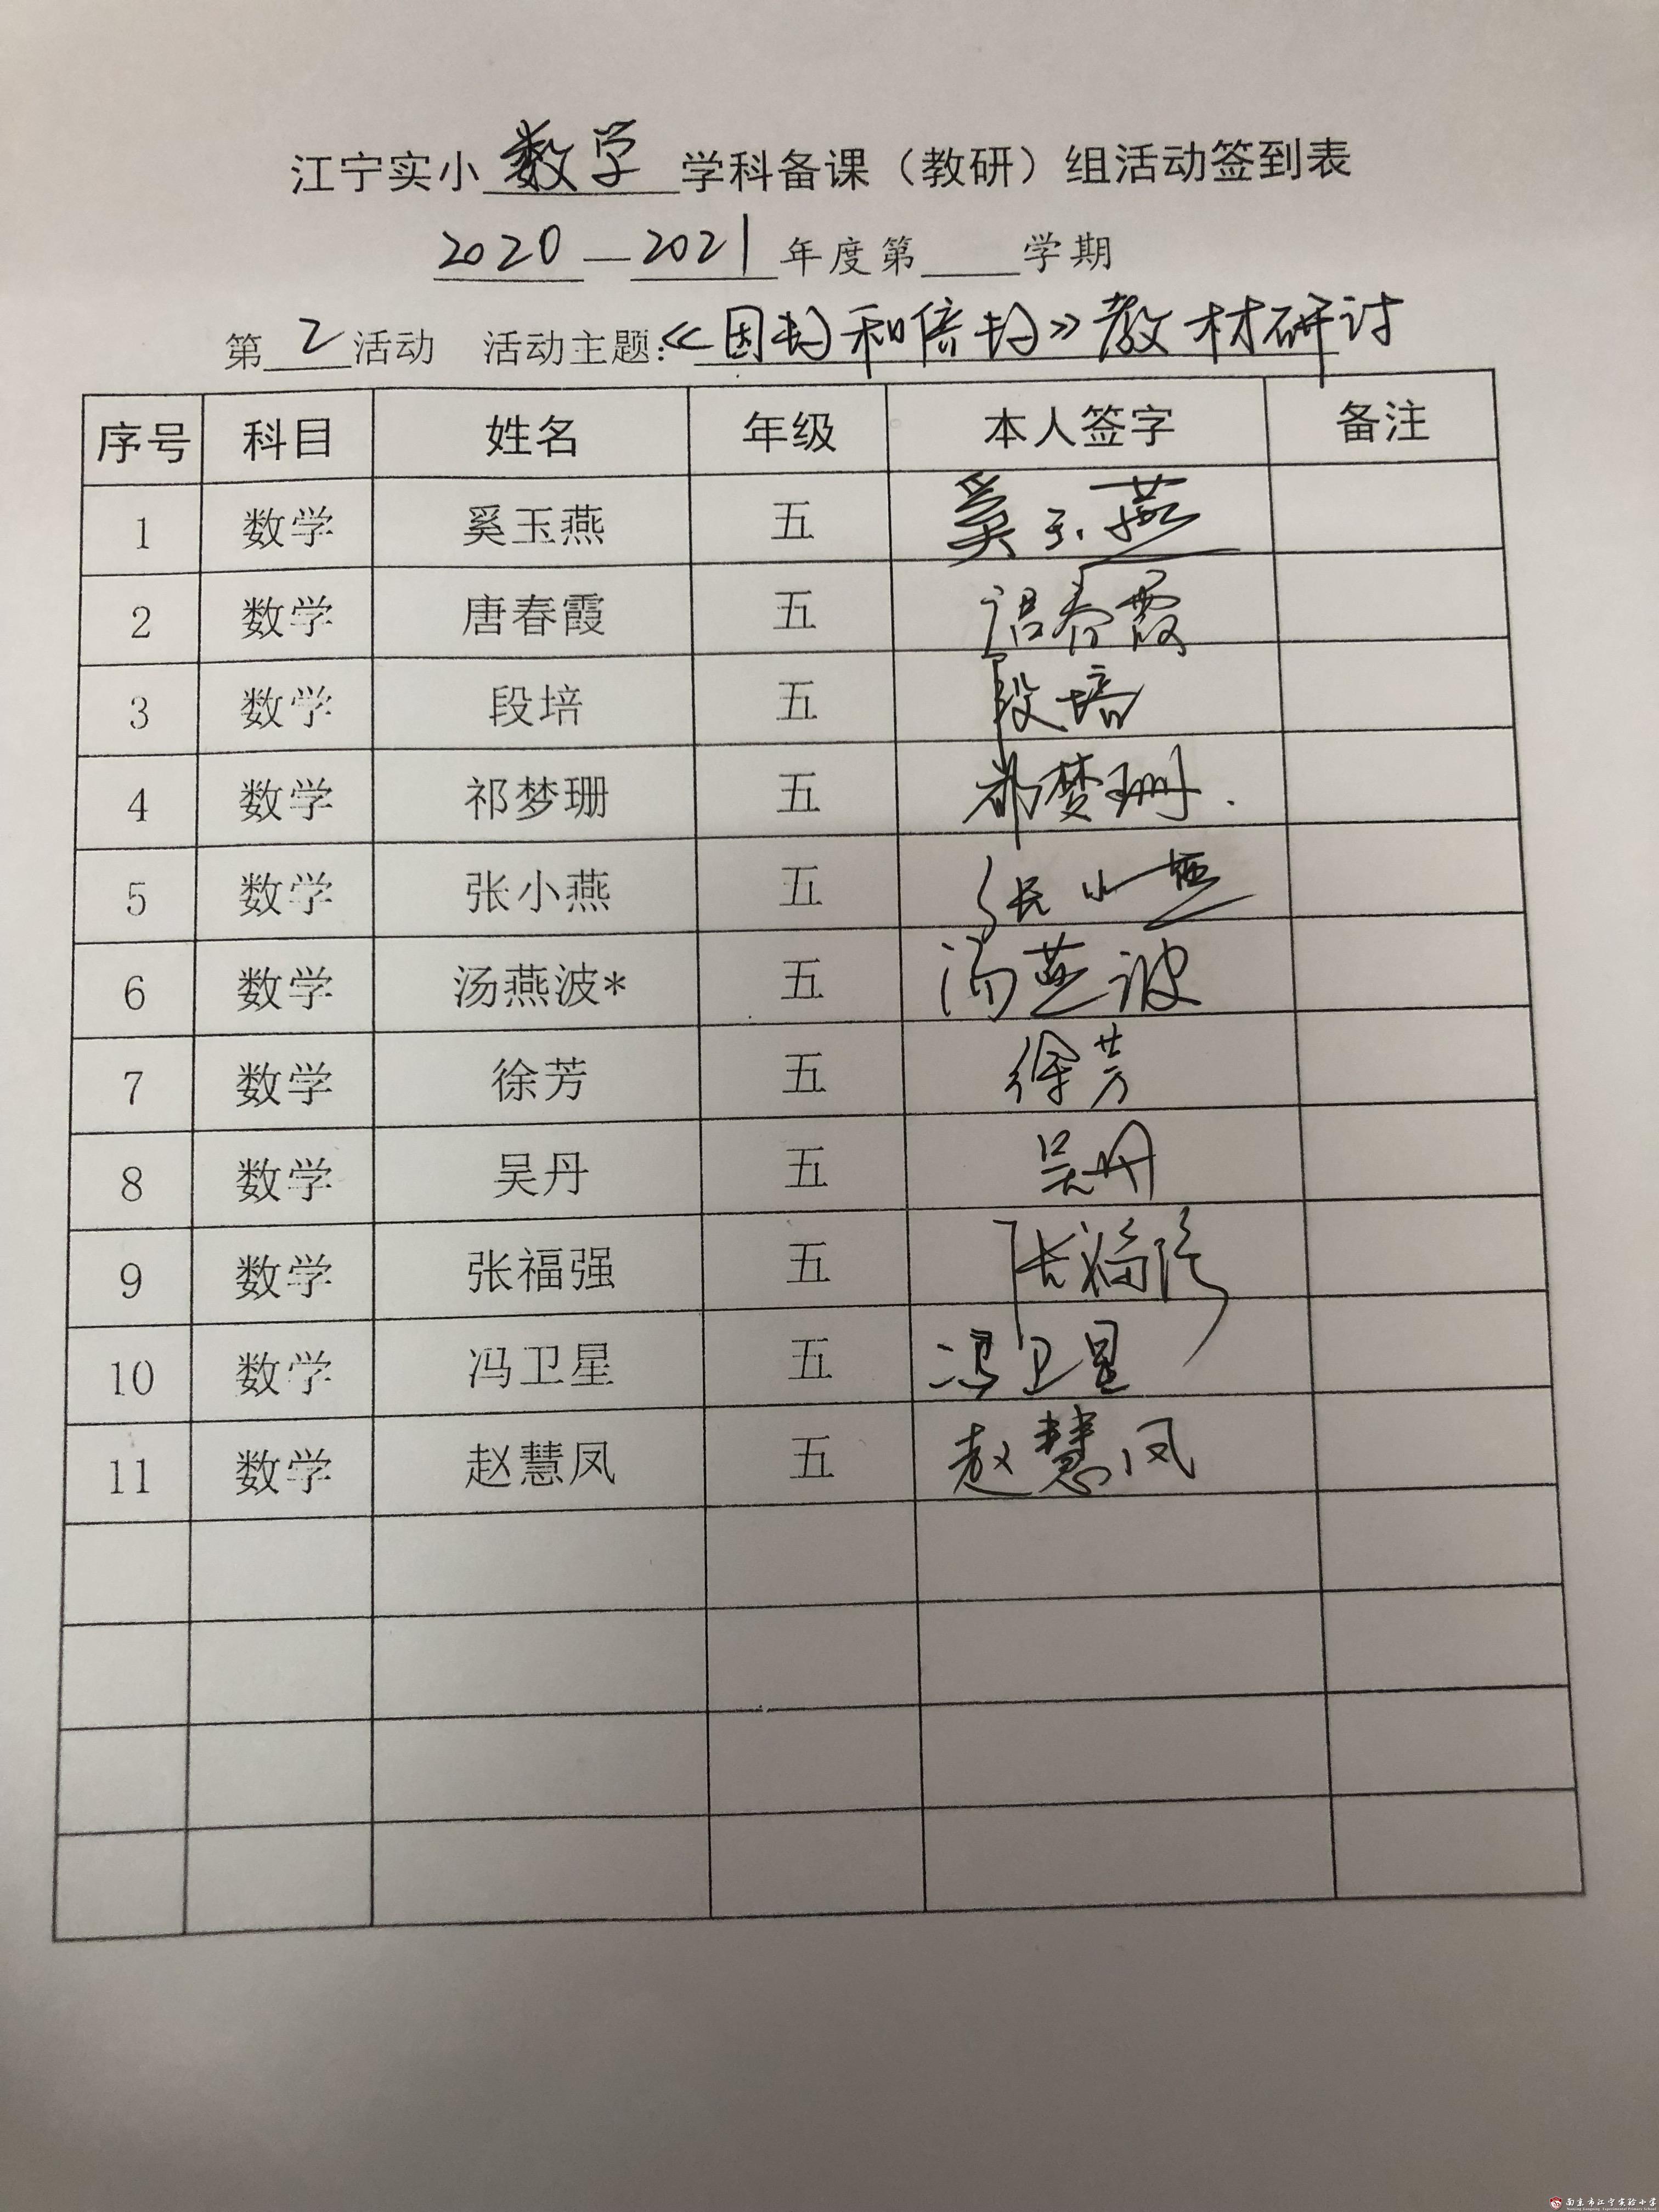 江宁实小 数学 学科备课（教研）组活动签到表
2020—2021年度第____学期
第 2 活动 活动主题：《因数和倍数》教材研讨
序号 科目 姓名 年级 本人签字 备注
1 数学 奚玉燕 五 奚玉燕
2 数学 唐春霞 五 唐春霞
3 数学 段培 五 段培
4 数学 祁梦珊 五 祁梦珊.
5 数学 张小燕 五 张小燕
6 数学 汤燕波* 五 汤燕波
7 数学 徐芳 五 徐芳
8 数学 吴丹 五 吴丹
9 数学 张福强 五 张福强
10 数学 冯卫星 五 冯卫星
11 数学 赵慧凤 五 赵慧凤
南京市江宁实验小学